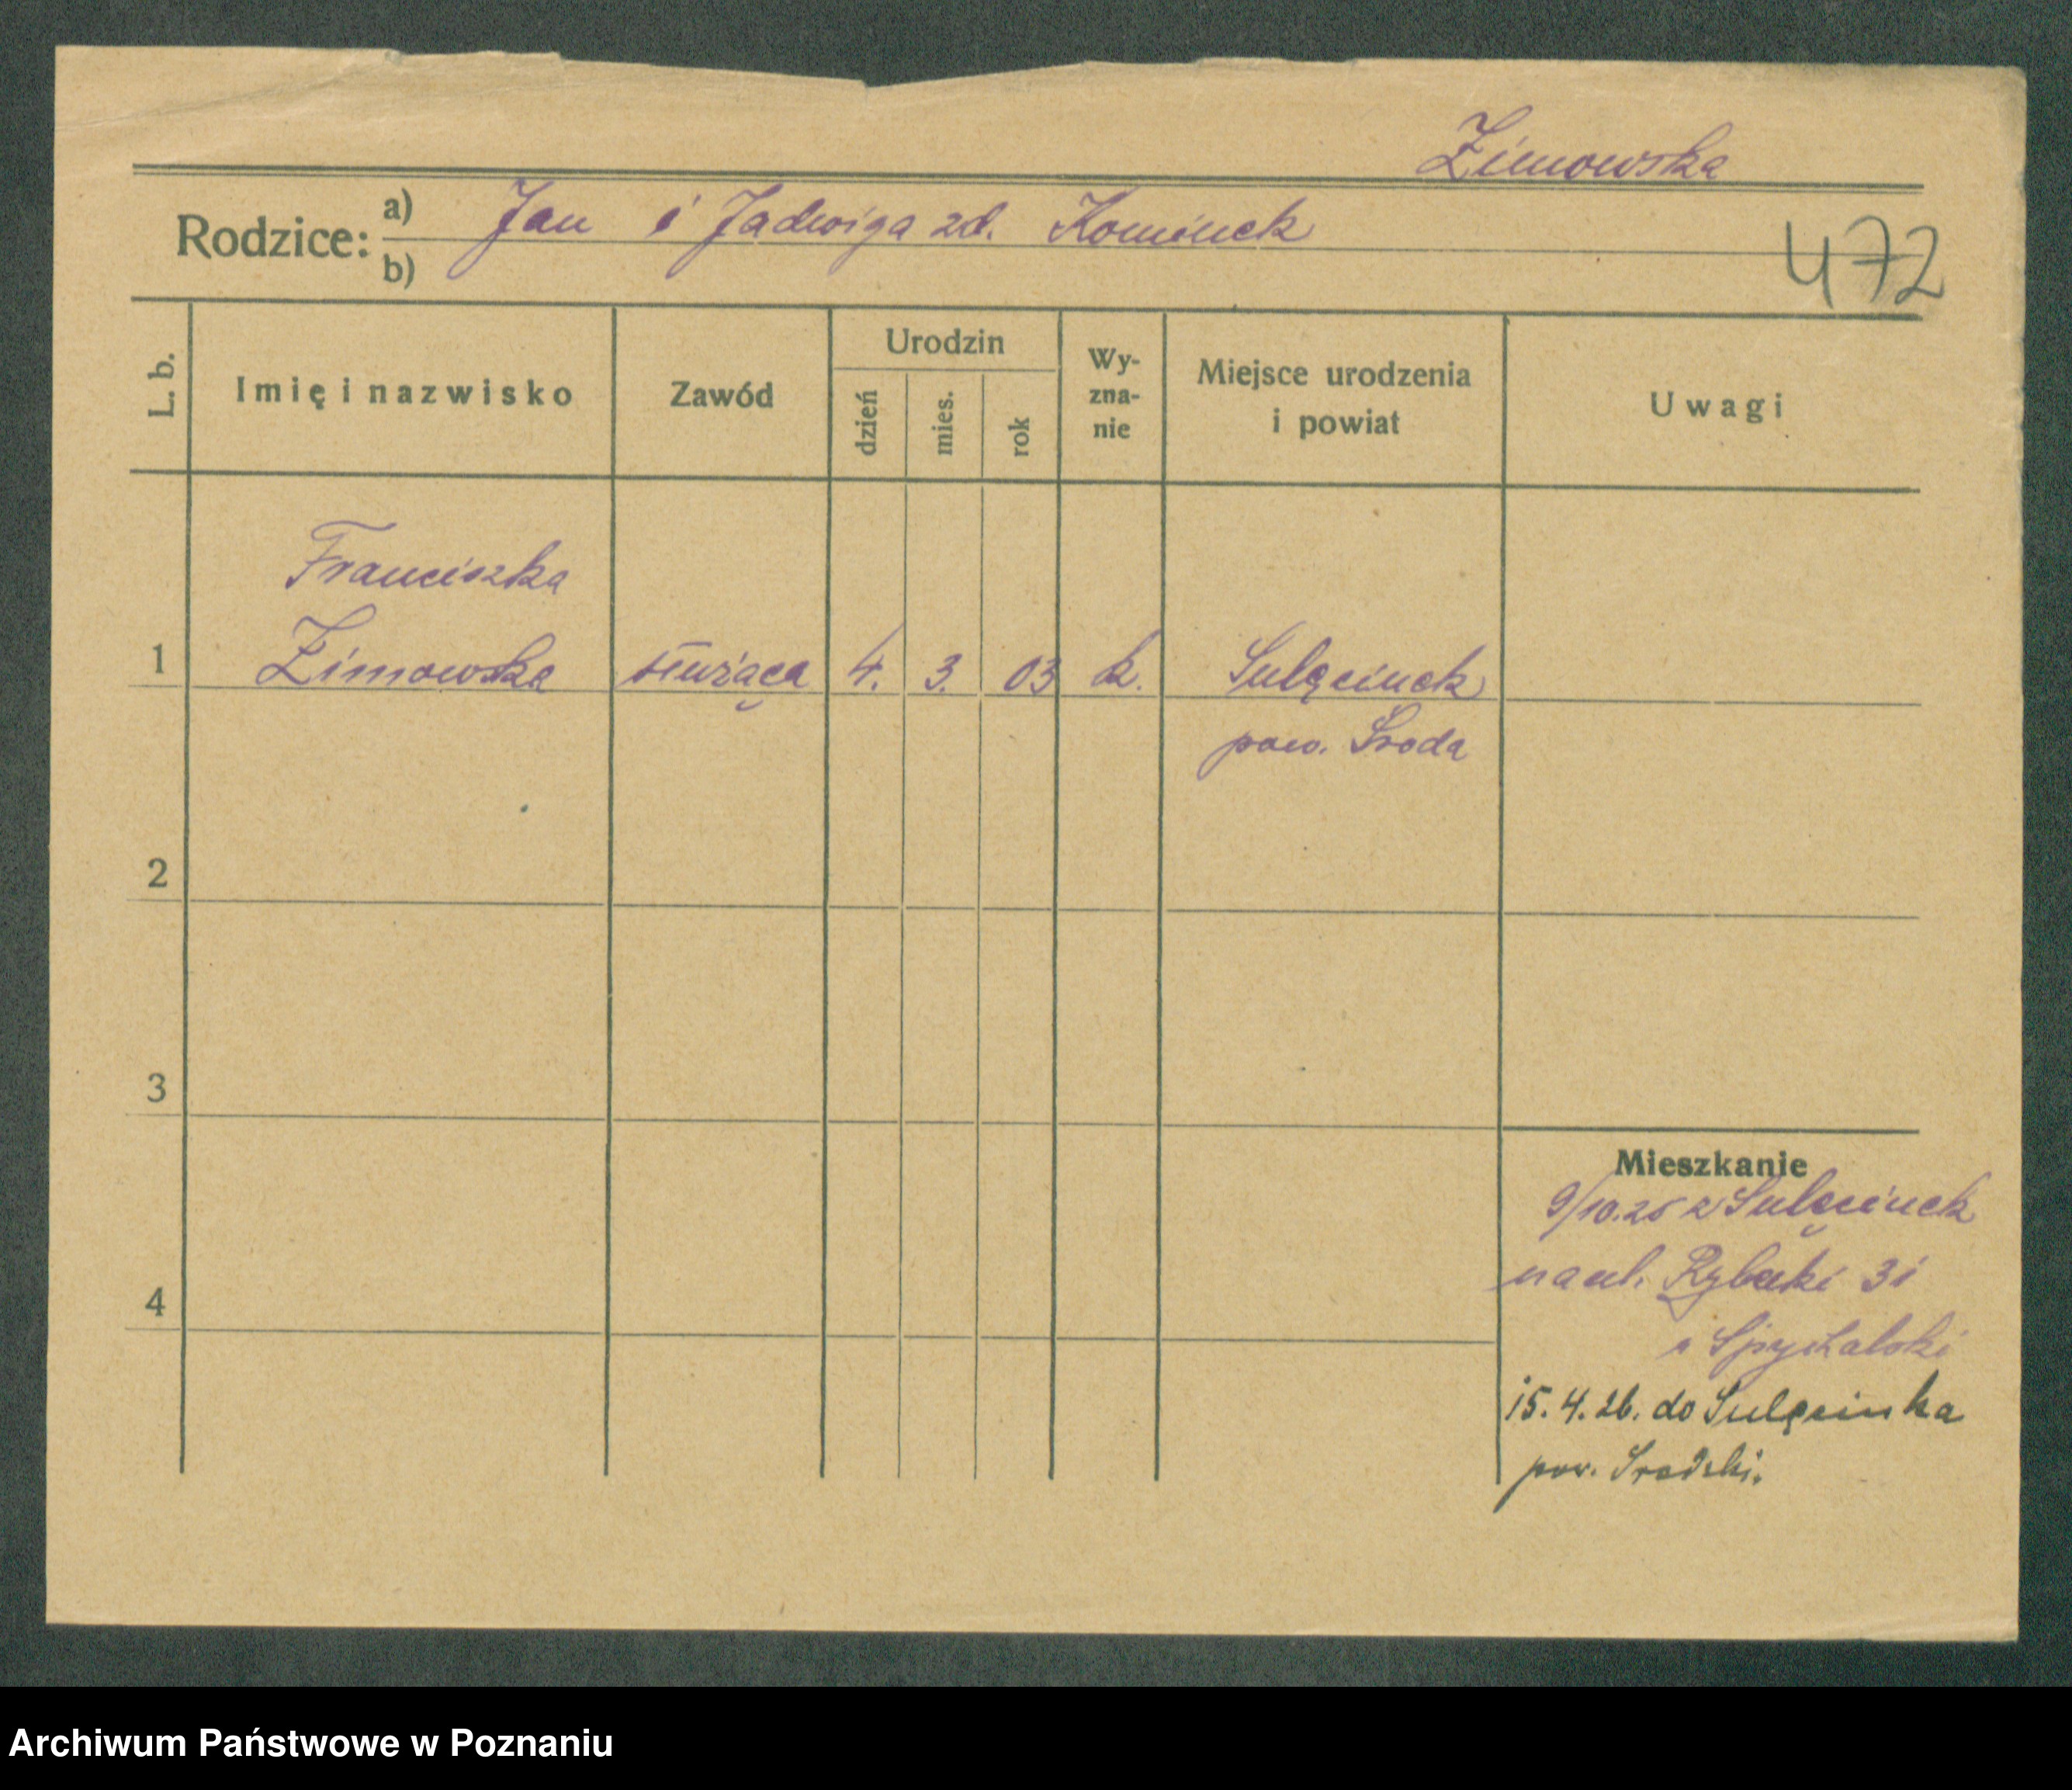 Zimowska
Rodzice: a) Jan i Jadwiga zd. Kominek
b)
472
L. b. Imię i nazwisko Zawód Urodzin dzień mies. rok Wy-zna-nie Miejsce urodzenia i powiat Uwagi
Franciszka
1 Zimowska służąca 4. 3. 03 k. Sulęcinek
pow. Środa
2
3
Mieszkanie
9/10.25 z Sulęcinek
na ul. Rybaki 31
Spychalski
4
15. 4. 26. do Sulęcinka
pow. Średzki.
Archiwum Państwowe w Poznaniu